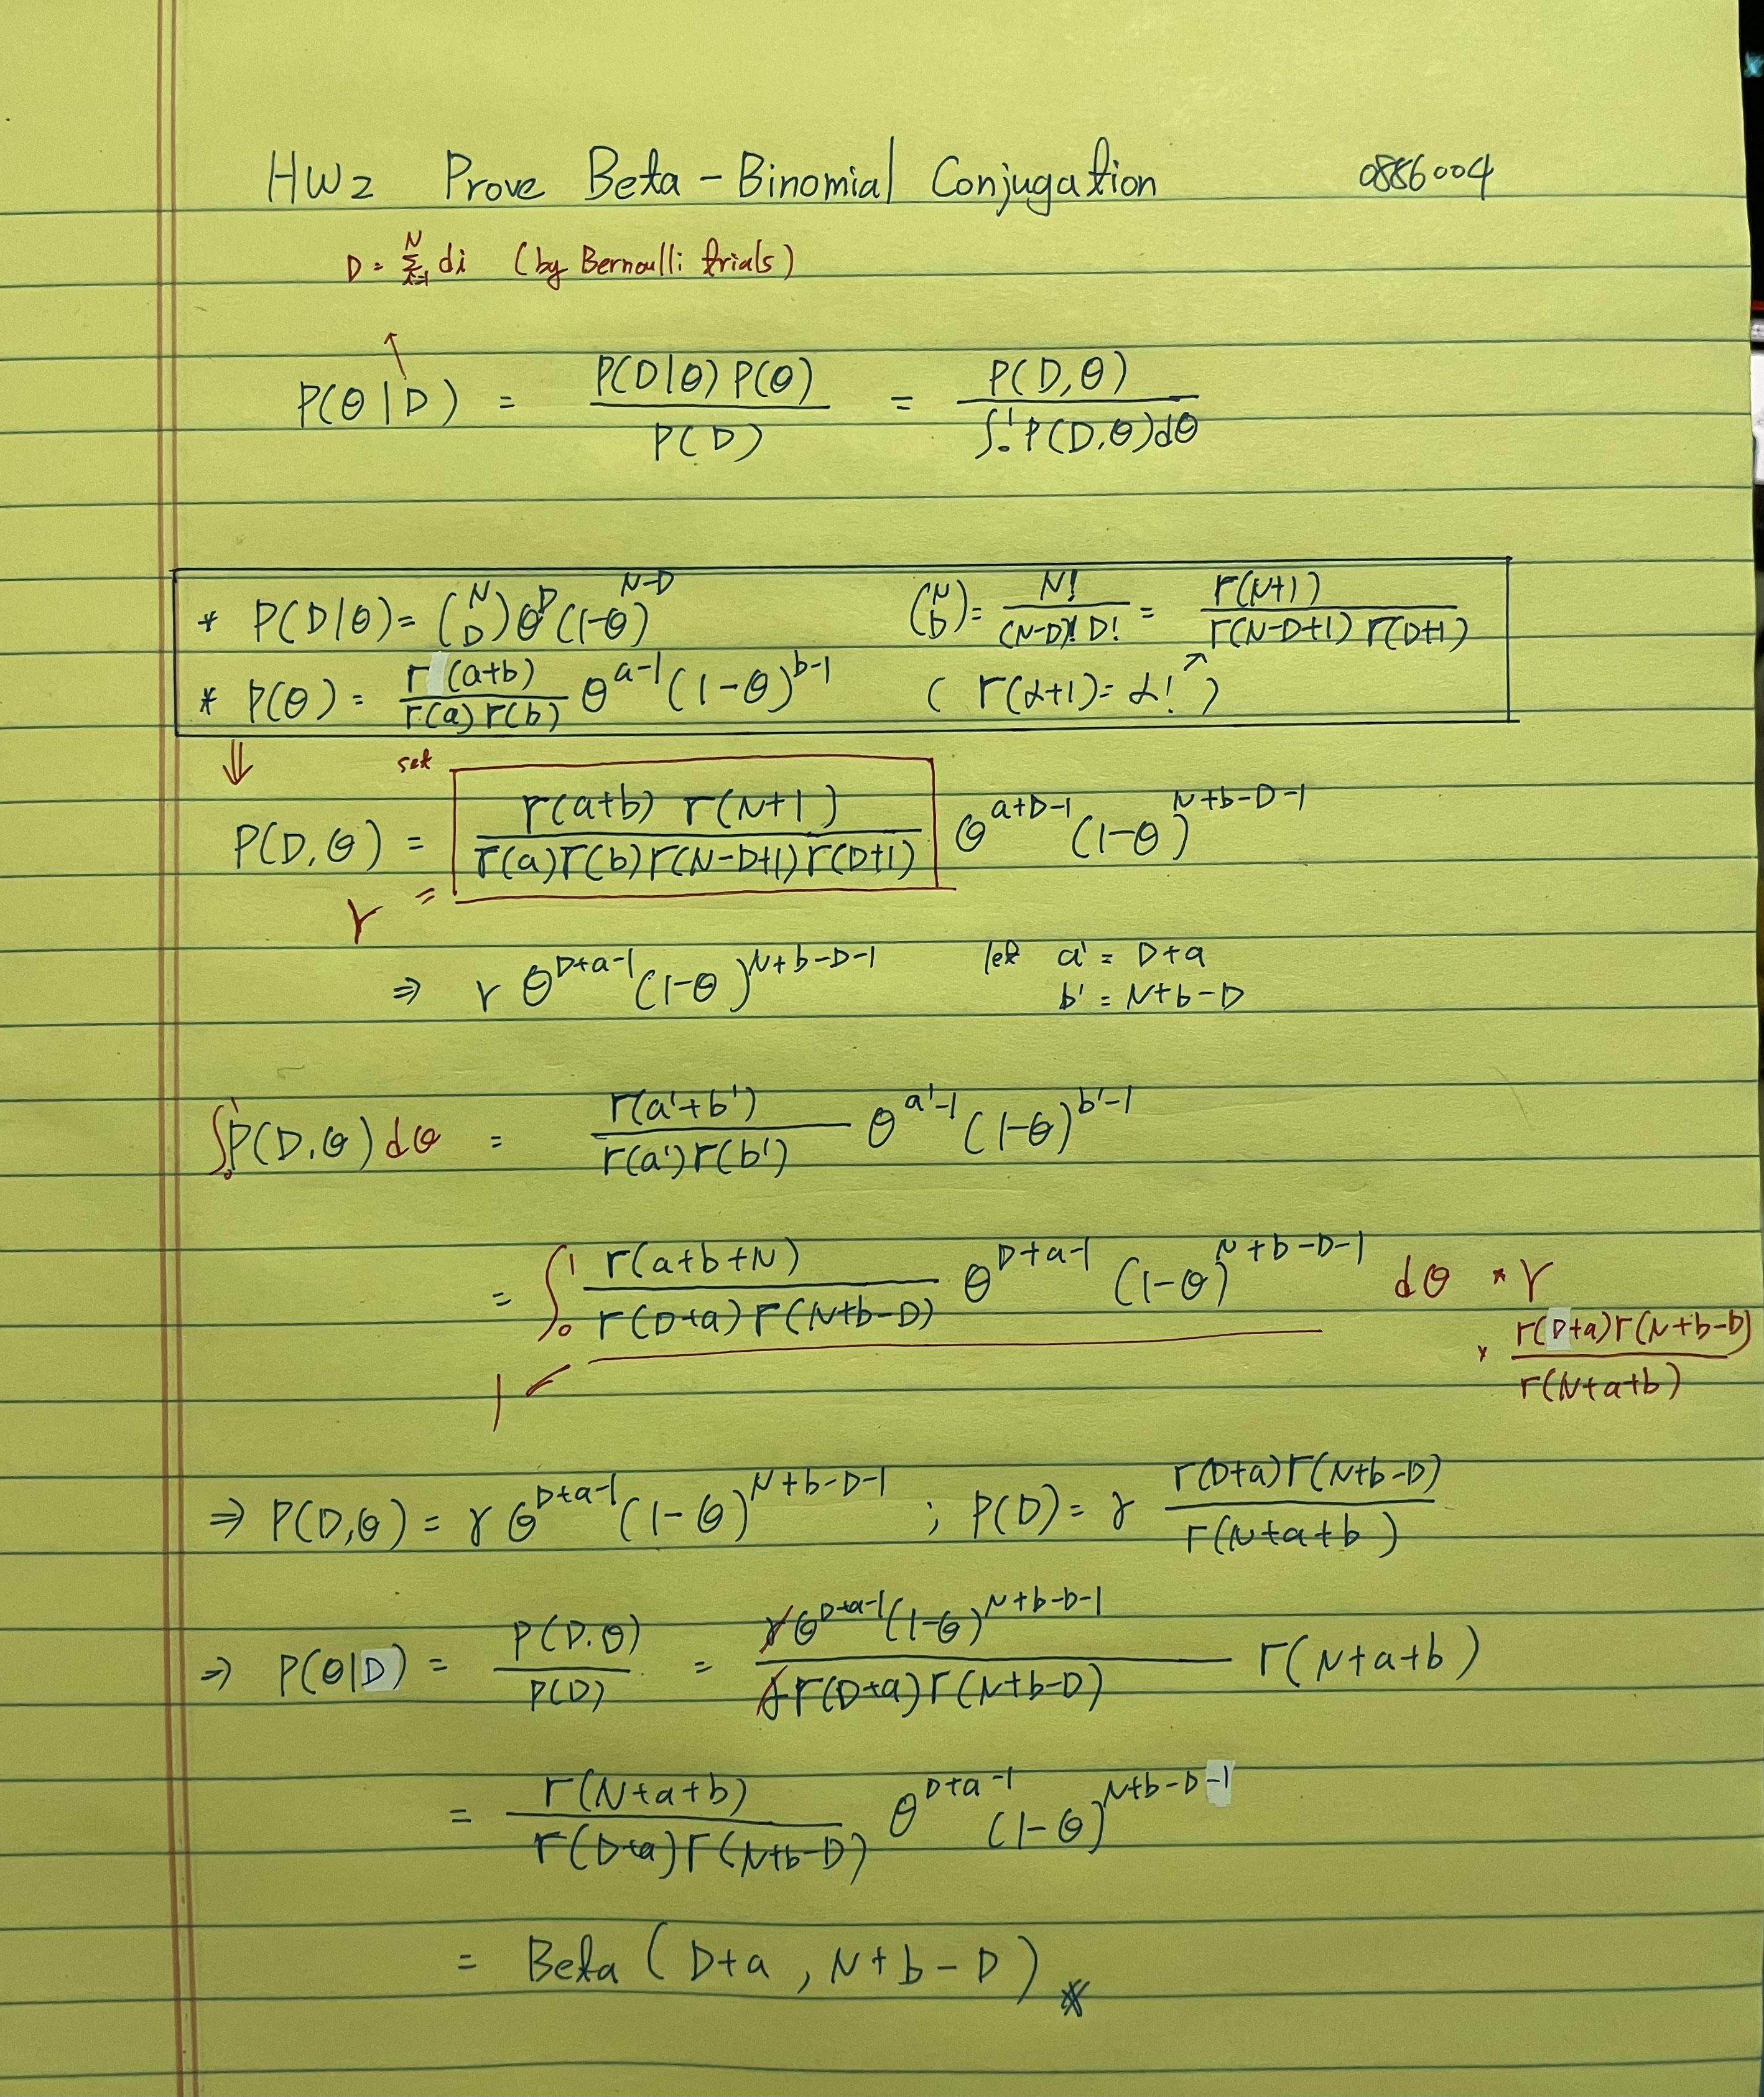 HW2 Prove Beta-Binomial Conjugation 0886004
D = Σ_{i=1}^{N} di (by Bernoulli trials)
P(θ|D) = P(D|θ) P(θ) / P(D) = P(D,θ) / ∫₀¹ P(D,θ)dθ
* P(D|θ) = (N D) θ^D (1-θ)^{N-D} (N D) = N! / (N-D)! D! = Γ(N+1) / Γ(N-D+1) Γ(D+1)
* P(θ) = Γ(a+b) / Γ(a) Γ(b) θ^{a-1} (1-θ)^{b-1} ( Γ(α+1) = α! ↗ )
⇓ set
P(D,θ) = Γ(a+b) Γ(N+1) / Γ(a)Γ(b)Γ(N-D+1)Γ(D+1) θ^{a+D-1} (1-θ)^{N+b-D-1}
γ =
⇒ γ θ^{D+a-1} (1-θ)^{N+b-D-1} let a' = D+a
b' = N+b-D
∫₀¹ P(D,θ) dθ = Γ(a'+b') / Γ(a')Γ(b') θ^{a'-1} (1-θ)^{b'-1}
= ∫₀¹ Γ(a+b+N) / Γ(D+a) Γ(N+b-D) θ^{D+a-1} (1-θ)^{N+b-D-1} dθ * γ
* Γ(D+a)Γ(N+b-D) / Γ(N+a+b)
1
⇒ P(D,θ) = γ θ^{D+a-1} (1-θ)^{N+b-D-1} ; P(D) = γ Γ(D+a)Γ(N+b-D) / Γ(N+a+b)
⇒ P(θ|D) = P(D,θ) / P(D) = γθ^{D+a-1}(1-θ)^{N+b-D-1} / γΓ(D+a)Γ(N+b-D) Γ(N+a+b)
= Γ(N+a+b) / Γ(D+a)Γ(N+b-D) θ^{D+a-1} (1-θ)^{N+b-D-1}
= Beta ( D+a , N+b-D ) *